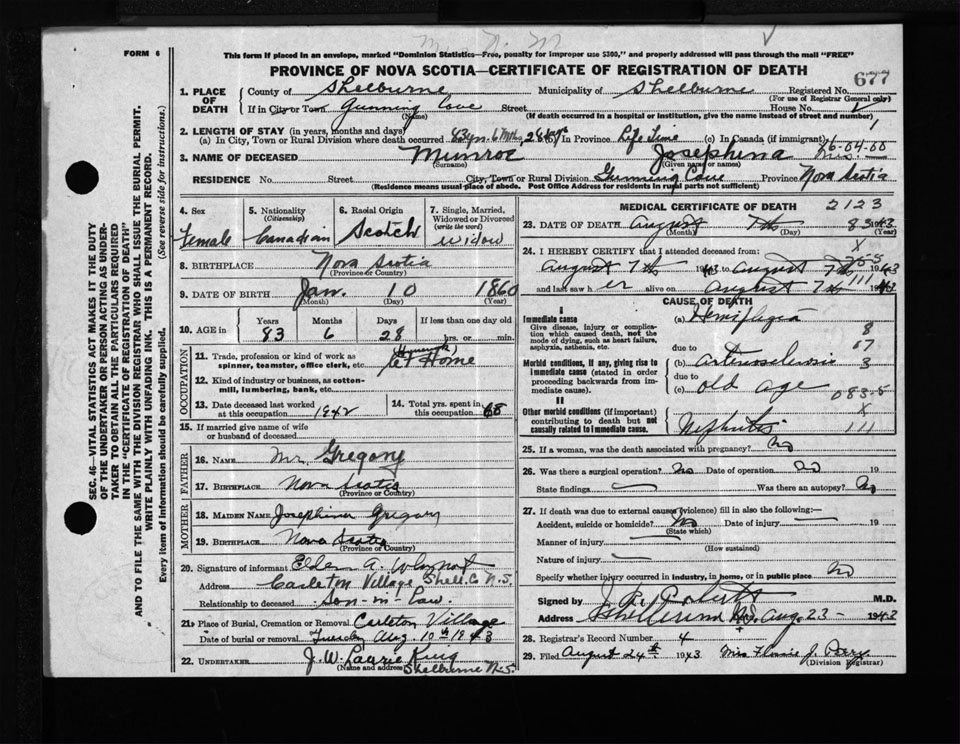 FORM 6
This form if placed in an envelope, marked "Dominion Statistics—Free, penalty for improper use $300," and properly addressed will pass through the mail "FREE"
PROVINCE OF NOVA SCOTIA—CERTIFICATE OF REGISTRATION OF DEATH
677
1. PLACE OF DEATH
County of Shelburne Municipality of Shelburne Registered No.
(For use of Registrar General only)
If in City or Town Gunning Cove Street House No.
(Name) (If death occurred in a hospital or institution, give the name instead of street and number)
2. LENGTH OF STAY (in years, months and days)
(a) In City, Town or Rural Division where death occurred 83 yrs. 6 Mths. 28 dys (b) In Province Life Time (c) In Canada (if immigrant)
3. NAME OF DECEASED Munroe Josephina Mrs.
(Surname) (Given name or names)
RESIDENCE No. Street City, Town or Rural Division Gunning Cove Province Nova Scotia
(Residence means usual place of abode. Post Office Address for residents in rural parts not sufficient)
4. Sex Female
5. Nationality (Citizenship) Canadian
6. Racial Origin Scotch
7. Single, Married, Widowed or Divorced (write the word) widow
8. BIRTHPLACE Nova Scotia
(Province or Country)
9. DATE OF BIRTH Jan. 10 1860
(Month) (Day) (Year)
10. AGE in Years 83 Months 6 Days 28 If less than one day old hrs. or min.
OCCUPATION
11. Trade, profession or kind of work as spinner, teamster, office clerk, etc. At Home
12. Kind of industry or business, as cotton-mill, lumbering, bank, etc.
13. Date deceased last worked at this occupation 1942
14. Total yrs. spent in this occupation 68
15. If married give name of wife or husband of deceased
FATHER
16. NAME Mr. Gregory
17. BIRTHPLACE Nova Scotia
(Province or Country)
MOTHER
18. MAIDEN NAME Josephina Gregory
19. BIRTHPLACE Nova Scotia
(Province or Country)
20. Signature of informant Elden A. Whynot
Address Carleton Village Shel. Co N.S.
Relationship to deceased Son-in-Law.
21. Place of Burial, Cremation or Removal Carleton Village
Date of burial or removal Tuesday Aug. 10th 1943
22. UNDERTAKER J. W. Laurie King
(Name and address) Shelburne N.S.
MEDICAL CERTIFICATE OF DEATH
2123
23. DATE OF DEATH August 7th 1943
(Month) (Day) (Year)
24. I HEREBY CERTIFY that I attended deceased from:
August 7th 1943 to August 7th 1943
and last saw her alive on August 7th 1943
CAUSE OF DEATH
I
Immediate cause
Give disease, injury or complication which caused death, not the mode of dying, such as heart failure, asphyxia, asthenia, etc.
(a) Hemiplegia
due to
Morbid conditions, if any, giving rise to immediate cause (stated in order proceeding backwards from immediate cause).
(b) arteriosclerosis
due to
(c) old age
083-5
II
Other morbid conditions (if important) contributing to death but not causally related to immediate cause.
Nephritis
111
25. If a woman, was the death associated with pregnancy? No
26. Was there a surgical operation? No Date of operation No 19
State findings Was there an autopsy? No
27. If death was due to external causes (violence) fill in also the following:—
Accident, suicide or homicide? No Date of injury 19
(State which)
Manner of injury
(How sustained)
Nature of injury
Specify whether injury occurred in industry, in home, or in public place No
Signed by Roberts M.D.
Address Shelburne N.S. Aug. 23- 1943
28. Registrar's Record Number 4
29. Filed August 24th 1943 Mrs. Flossie J.
(Division Registrar)
SEC. 46—VITAL STATISTICS ACT MAKES IT THE DUTY OF THE UNDERTAKER OR PERSON ACTING AS UNDERTAKER TO OBTAIN ALL THE PARTICULARS REQUIRED IN THE "CERTIFICATE OF REGISTRATION OF DEATH" AND TO FILE THE SAME WITH THE DIVISION REGISTRAR WHO SHALL ISSUE THE BURIAL PERMIT.
WRITE PLAINLY WITH UNFADING INK. THIS IS A PERMANENT RECORD.
Every item of information should be carefully supplied. (See reverse side for instructions.)